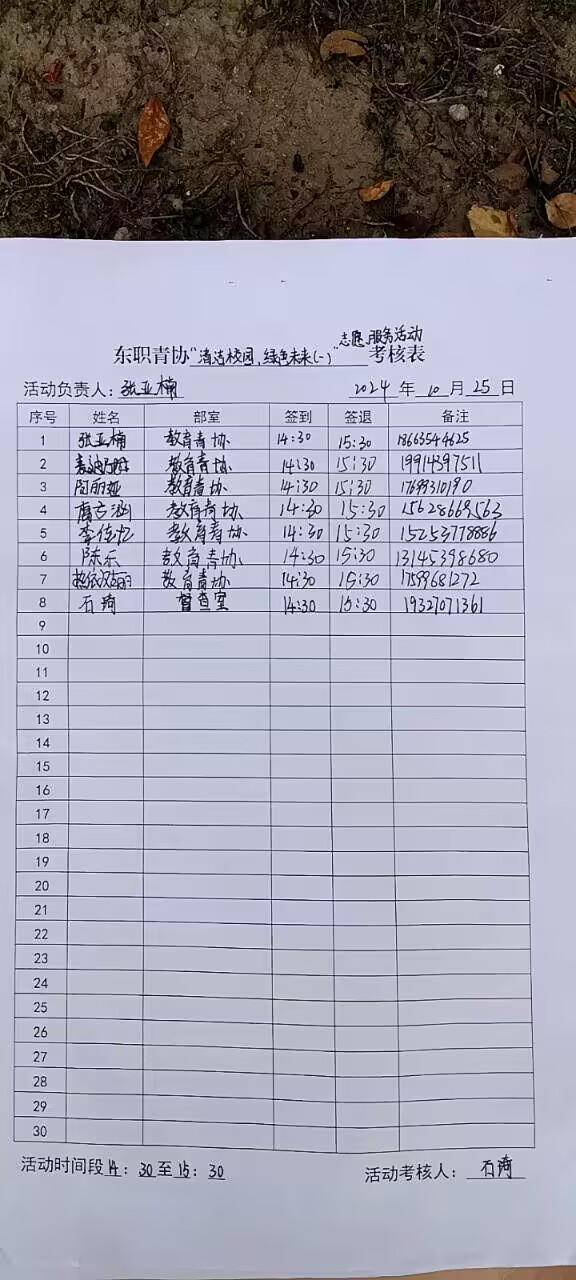 志愿服务活动
东职青协“清洁校园,绿色未来(一)”考核表
活动负责人:张亚楠 2024年10月25日
序号 姓名 部室 签到 签退 备注
1 张亚楠 教育青协 14:30 15:30 18663544625
2 教育青协 14:30 15:30 19914397511
3 阿丽娅 教育青协 14:30 15:30 17699310190
4 教育青协 14:30 15:30 15628669563
5 李佳忆 教育青协 14:30 15:30 15253778886
6 陈乐 教育青协 14:30 15:30 13145398680
7 教育青协 14:30 15:30 17599681272
8 石琦 督查室 14:30 15:30 19327071361
9
10
11
12
13
14
15
16
17
18
19
20
21
22
23
24
25
26
27
28
29
30
活动时间段14:30至15:30 活动考核人:石琦